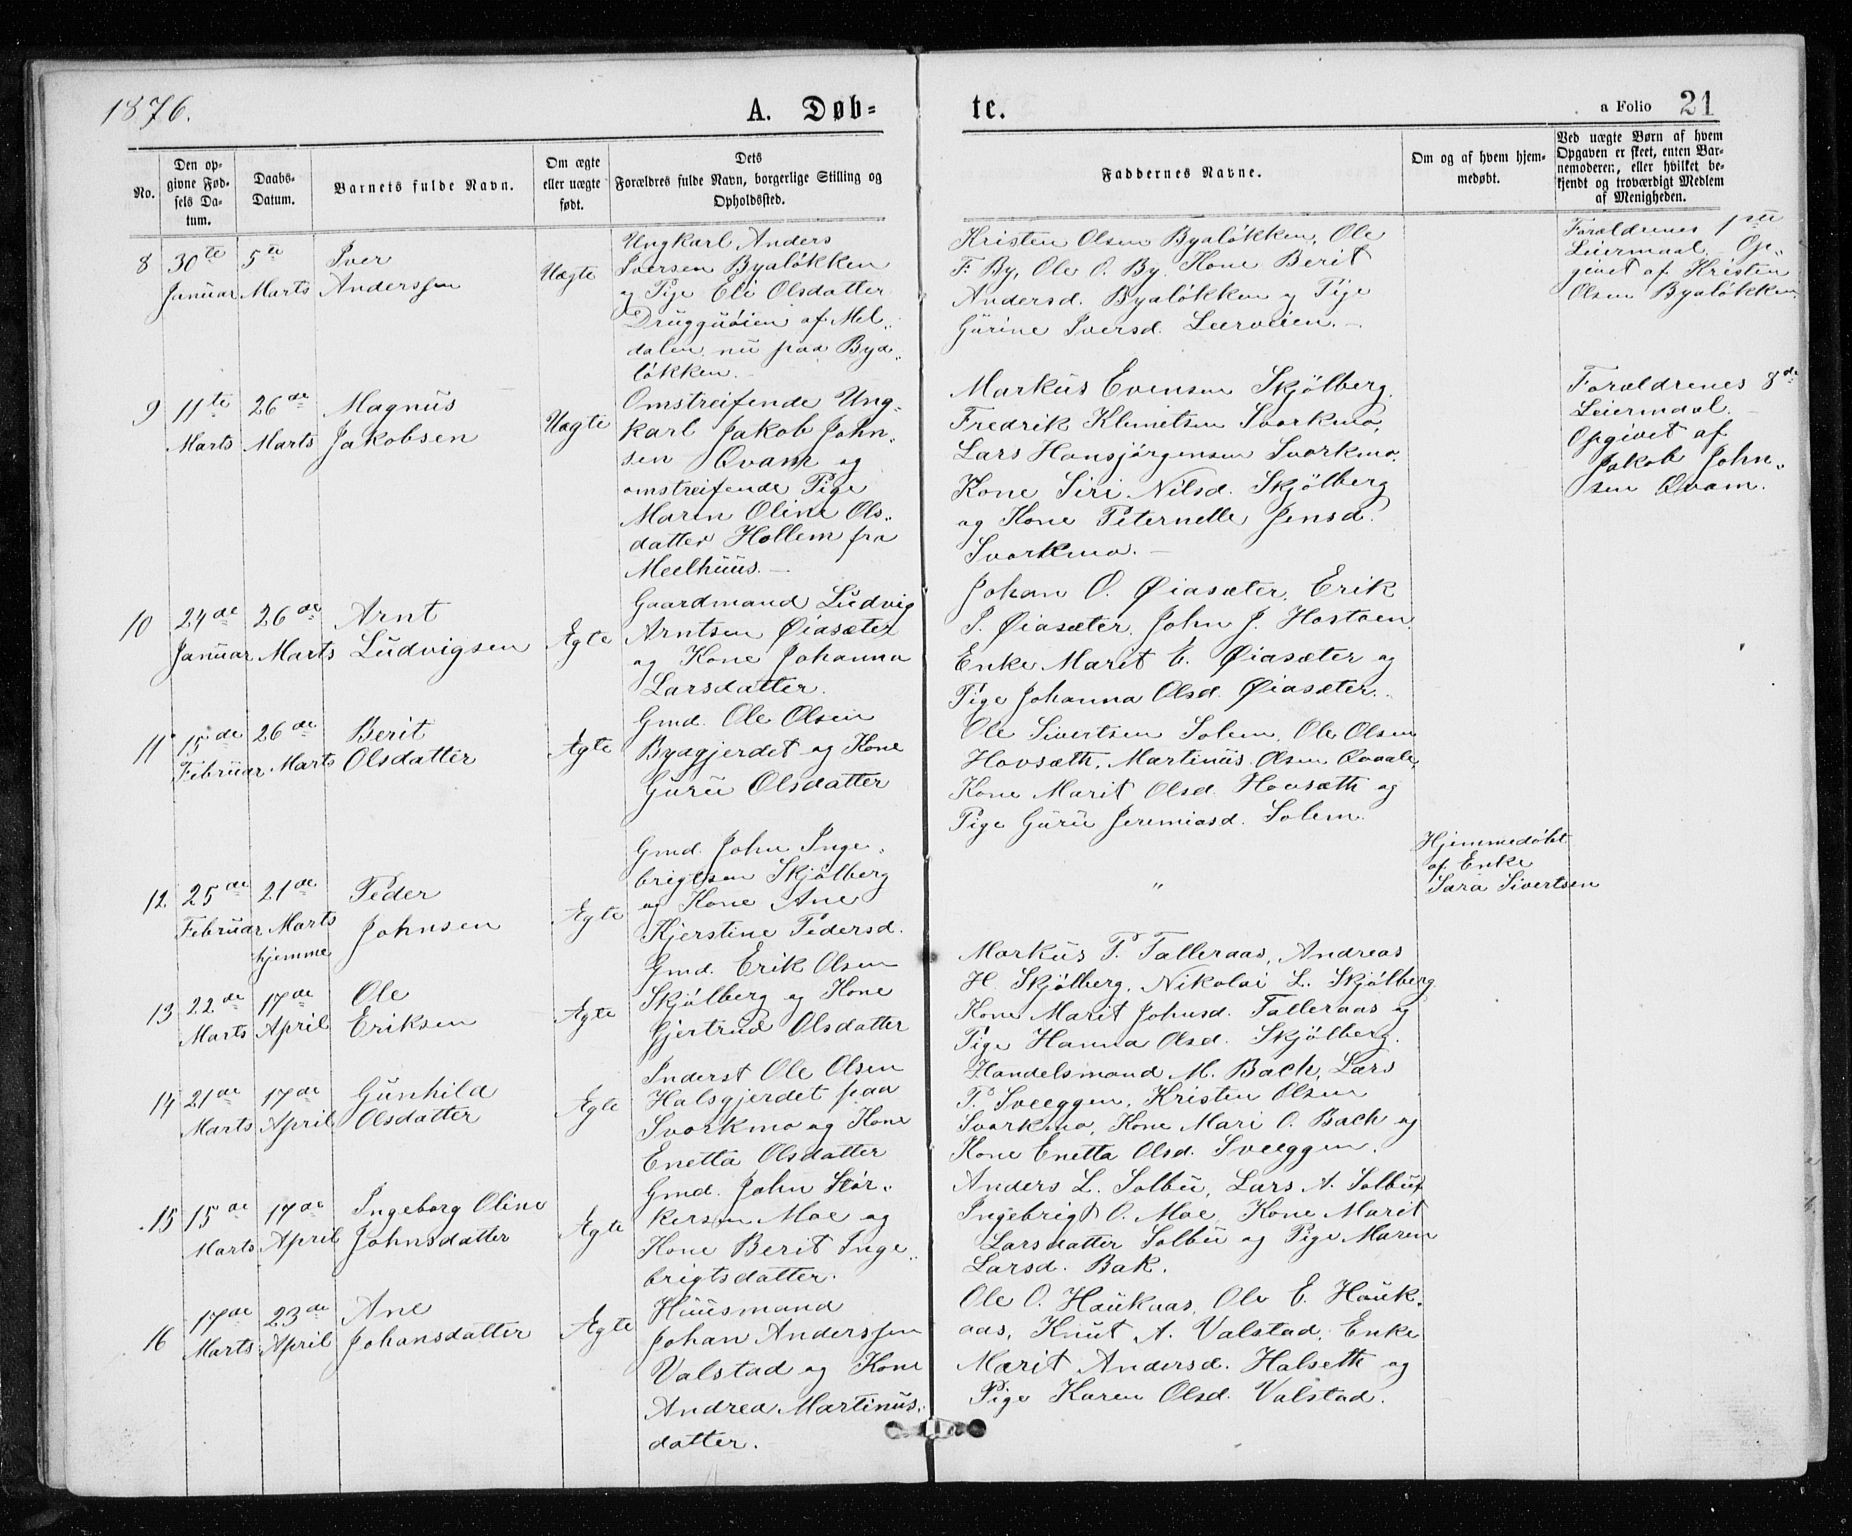 1876.
A. Døb-
te.
a Folio 21
No.
Den op-
givne Fød-
sels Da-
tum.
Daabs-
Datum.
Barnets fulde Navn.
Om ægte
eller uægte
født.
Dets
Forældres fulde Navn, borgerlige Stilling og
Opholdssted.
Faddernes Navne.
Om og af hvem hjem-
medøbt.
Ved uægte Børn af hvem
Opgaven er skeet, enten Bar-
nemoderen, eller hvilket be-
kjendt og troværdigt Medlem
af Menigheden.
8
30te
Januar
5te
Marts
Iver
Anderssen
Uægte
Ungkarl Anders
Iversen Byaløkken
og Pige Eli Olsdatter
af Mel-
dalen nu paa Bya-
løkken.
Kristen Olsen Byaløkken, Ole
F. By, Ole O. By, Kone Berit
Andersd. Byaløkken og Pige
Gurine Iversd. Leerveien.
Forældrenes 1ste
Leiermaal. Op-
givet af Kristen
Olsen Byaløkken
9
11te
Marts
26de
Marts
Magnus
Jakobsen
Uægte
Omstreifende Ung-
karl Jakob John-
sen Qvam og
omstreifende Pige
Maren Oline Ols-
datter Hollem fra
Meelhuus.
Markus Evensen Skjølberg,
Fredrik Klemetsen Svorkmo,
Lars Hansjørgensen Svorkmo,
Kone Siri Nilsd. Skjølberg
og Kone Peternelle Jensd.
Svorkmo.
Forældrenes 8de
Leiermaal.
Opgivet af
Jakob John-
sen Qvam.
10
24de
Januar
26de
Marts
Arnt
Ludvigsen
Ægte
Gaardmand Ludvig
Arntsen Øiasæter
og Kone Johanna
Larsdatter.
Johan O. Øiasæter, Erik
P. Øiasæter, John J. Hostoen,
Enke Marit E. Øiasæter og
Pige Johanna Olsd. Øiasæter.
11
15de
Februar
26de
Marts
Berit
Olsdatter
Ægte
Gmd. Ole Olsen
Byagjerdet og Kone
Guru Olsdatter
Ole Sivertsen Solem, Ole Olsen
Hovsæth, Martinus Olsen Qvaale,
Kone Marit Olsd. Hovsæth og
Pige Guru Jeremiasd. Solem.
12
25de
Februar
21de
Marts
hjemme
Peder
Johnsen
Ægte
Gmd. John Inge-
brigtsen Skjølberg
og Kone Ane
Kjerstine Pedersd.
"
Hjemmedøbt
af Enke
Sara Sivertsen
13
22de
Marts
17de
April
Ole
Eriksen
Ægte
Gmd. Erik Olsen
Skjølberg og Kone
Gjertrud Olsdatter
Markus P. Talleraas, Andreas
H. Skjølberg, Nikolai L. Skjølberg
Kone Marit Johnsd. Talleraas og
Pige Hanna Olsd. Skjølberg.
14
21de
Marts
17de
April
Gunhild
Olsdatter
Ægte
Inderst Ole Olsen
Halsgjerdet paa
Svorkmo og Kone
Enetta Olsdatter
Handelsmand M. Bach, Lars
P. Sveeggen, Kristen Olsen
Svorkmo, Kone Mari O. Bach og
Kone Enetta Olsd. Sveeggen.
15
15de
Marts
17de
April
Ingeborg Oline
Johnsdatter
Ægte
Gmd. John Stør-
kersen Moe og
Kone Berit Inge-
brigtsdatter.
Anders L. Solbu, Lars A. Solbu,
Ingebrigt O. Moe, Kone Marit
Larsdatter Solbu og Pige Maren
Larsd. Bak.
16
17de
Marts
23de
April
Ane
Johansdatter
Ægte
Huusmand
Johan Anderssen
Valstad og Kone
Andrea Martinus-
datter.
Ole O. Haukaas, Ole E. Hauk-
aas, Knut A. Valstad, Enke
Marit Andersd. Halseth og
Pige Karen Olsd. Valstad.